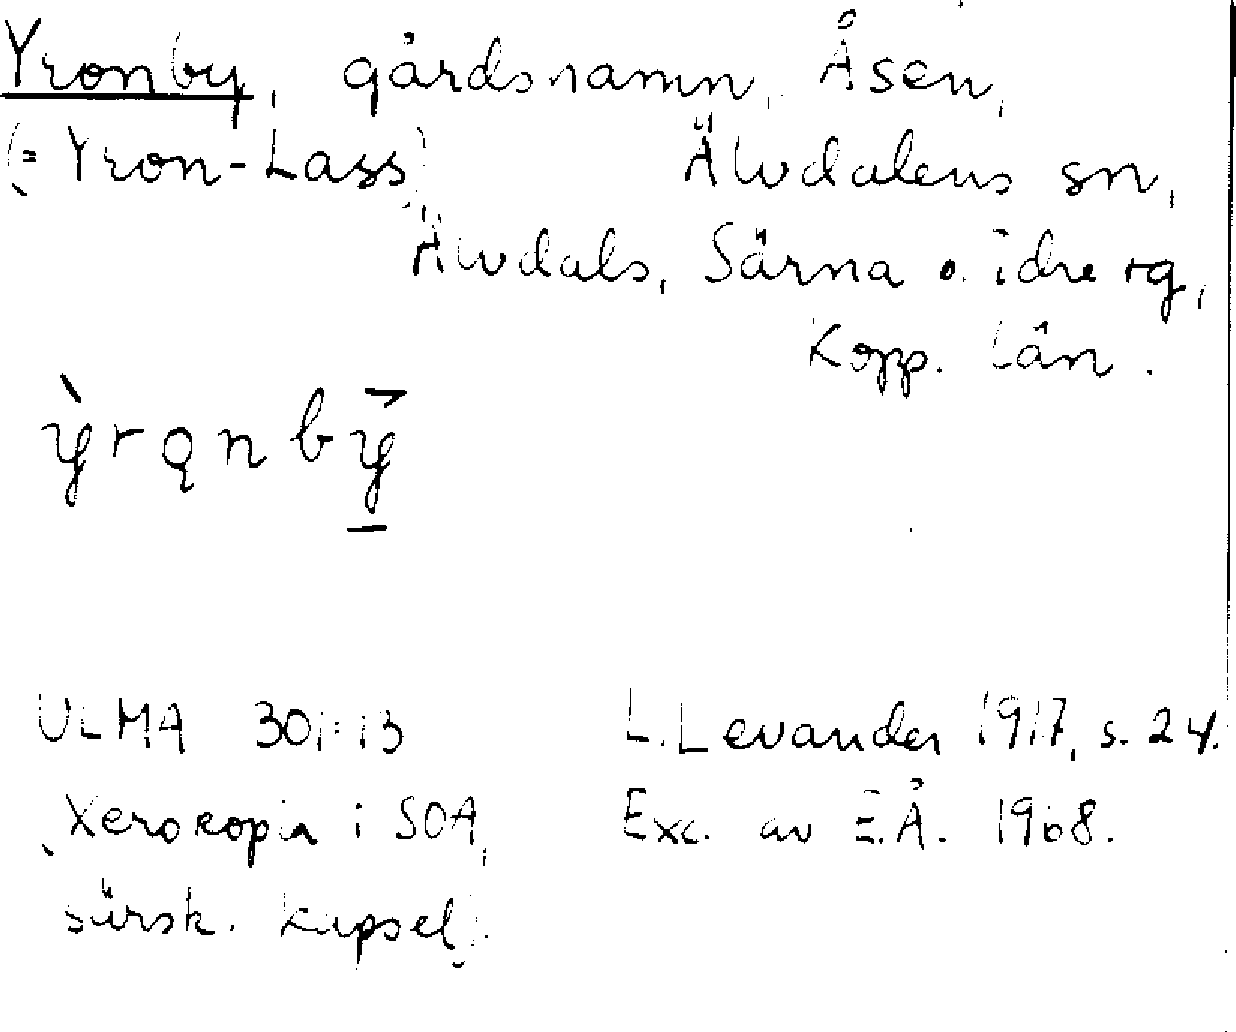 Yronby, gårdsnamn, Åsen,
(= Yron-Lass) Älvdalens sn,
Älvdals, Särna o. Idre tg,
Kopp. län.
ỳrǫnby̱
ULMA 301:13 L. Levander 1917, s. 24.
(Xerokopia i SOA, Exc. av E.Å. 1968.
särsk. kapsel).